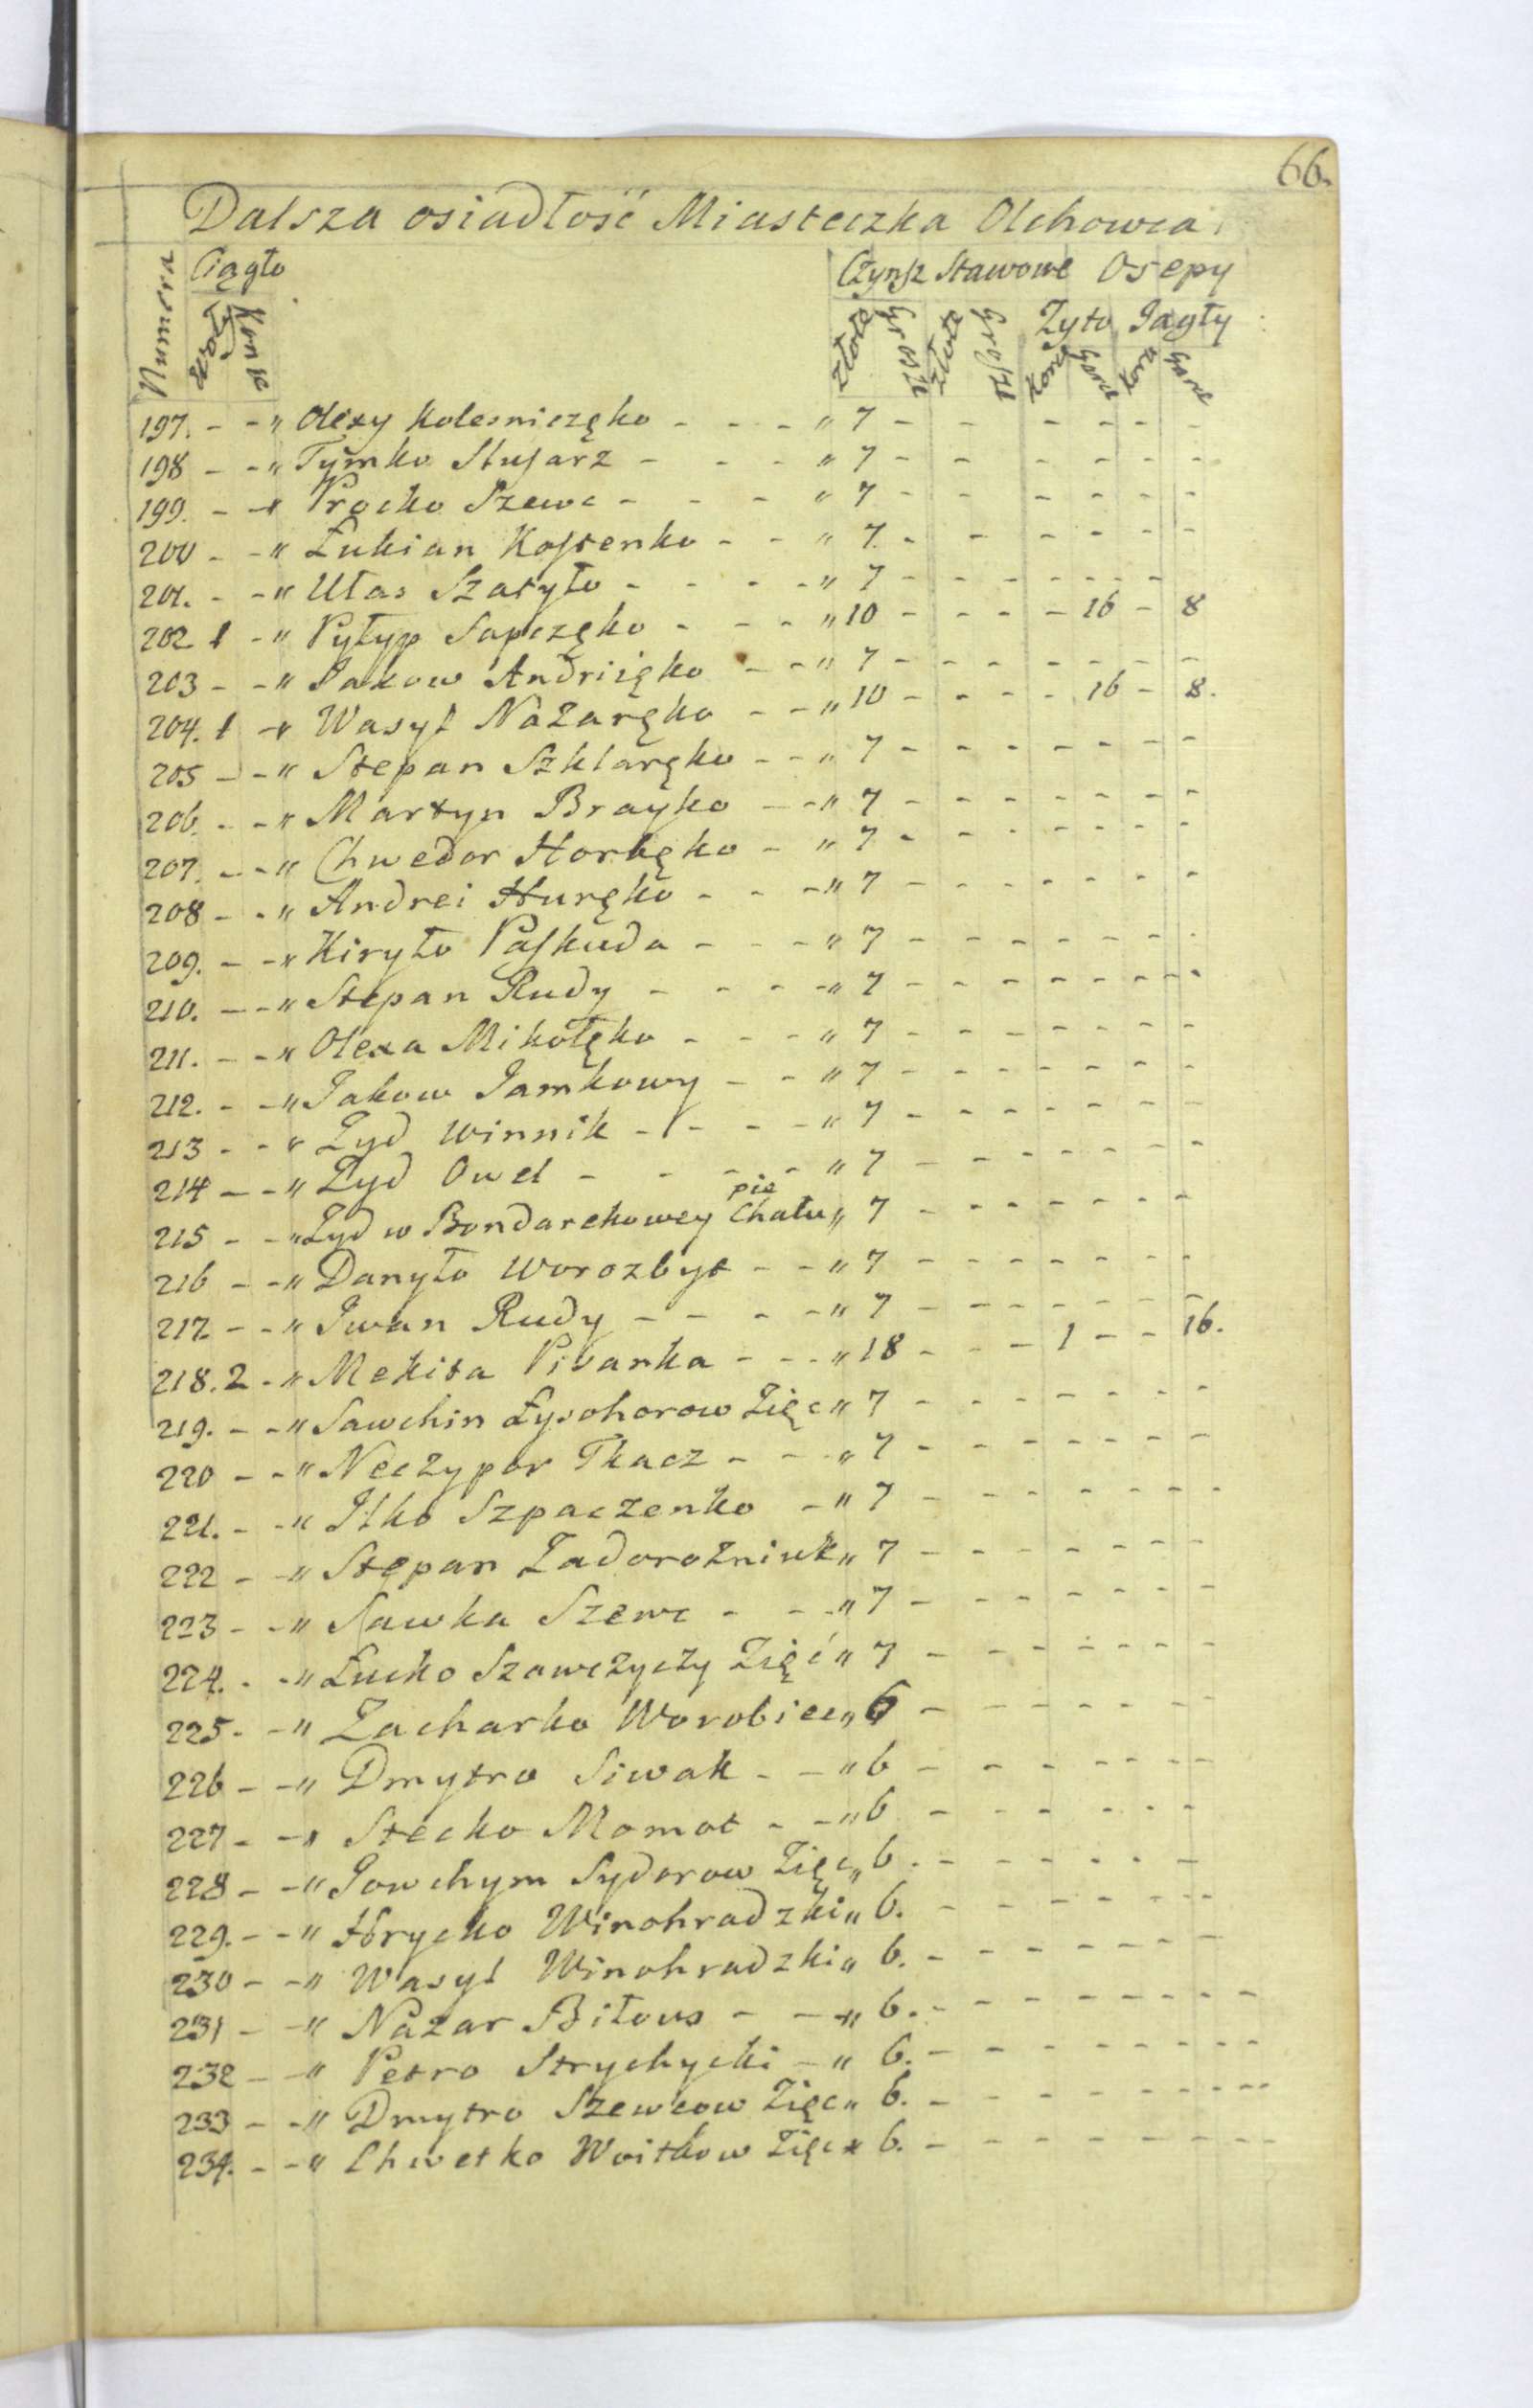 66.
Dalsza osiadłość Miasteczka Olchowca
Numera Ciągło Czynsz Stawowe Osepy
Konie Żyto Jagły
Złote Grosze Złote Grosze Korz Garce Korz Garce
197. - - " Olexy Kolesniczęko - - - " 7 - - - - - -
198 - - " Tymko Slusarz - - - " 7 - - - - - -
199. - - " Procko Szewc - - - " 7 - - - - - -
200 - - " Łukian Kostenko - - " 7. - - - - - -
201. - - " Ułas Szatyło - - - - " 7 - - - - - -
202 1 - " Pyłyp Sapczęko - - - " 10 - - - - 16 - 8
203 - - " Jakow Andriięko - - " 7 - - - - - - -
204. 1 - " Wasyl Nazaręko - - " 10 - - - - 16 - 8.
205 - - " Stepan Szklaręko - - " 7 - - - - - - -
206. - - " Martyn Brayko - - " 7 - - - - - - -
207. - - " Chwedor Horbęko - " 7 - - - - - - -
208 - - " Andrei Huręko - - - " 7 - - - - - - -
209. - - " Kiryło Paskuda - - - " 7 - - - - - - -
210. - - " Stepan Rudy - - - - " 7 - - - - - - -
211. - - " Olexa Mikołęko - - - " 7 - - - - - - -
212. - - " Jakow Jamkowy - - " 7 - - - - - - -
213 - - " Żyd Winnik - - - - " 7 - - - - - - -
214 - - " Żyd Owel - - - - " 7 - - - - - - -
215 - - " Żyd w Bondarekowey Chału pie " 7 - - - - - - -
216 - - " Danyło Worozbyt - - " 7 - - - - - - -
217 - - " Iwan Rudy - - - - " 7 - - - - - - -
218. 2 - " Mekita Pivarka - - - " 18 - - - 1 - - 16.
219. - - " Sawchin Łysohorow Zięc " 7 - - - - - - -
220 - - " Neczypor Tkacz - - - " 7 - - - - - - -
221. - - " Ilko Szpaczenko - " 7 - - - - - - -
222 - - " Stepan Zadorożniuk " 7 - - - - - - -
223 - - " Sawka Szewc - - - " 7 - - - - - - -
224. - - " Łucko Szawczyczy Zięć " 7 - - - - - - -
225 - - " Zacharko Worobiec " 6 - - - - - - -
226 - - " Dmytro Siwak - - " 6 - - - - - - -
227 - - " Stecko Momot - - " 6 - - - - - - -
228 - - " Jowchym Sydorow Zięc " 6. - - - - - - -
229. - - " Hrycko Winohradzki " 6. - - - - - - -
230 - - " Wasyl Winohradzki " 6. - - - - - - -
231 - - " Nazar Biłous - - " 6. - - - - - - - -
232 - - " Petro Strychycki - " 6. - - - - - - - -
233 - - " Dmytro Szewcow Zięc " 6. - - - - - - - -
234. - - " Chwetko Woitkow Zięc " 6. - - - - - - - -